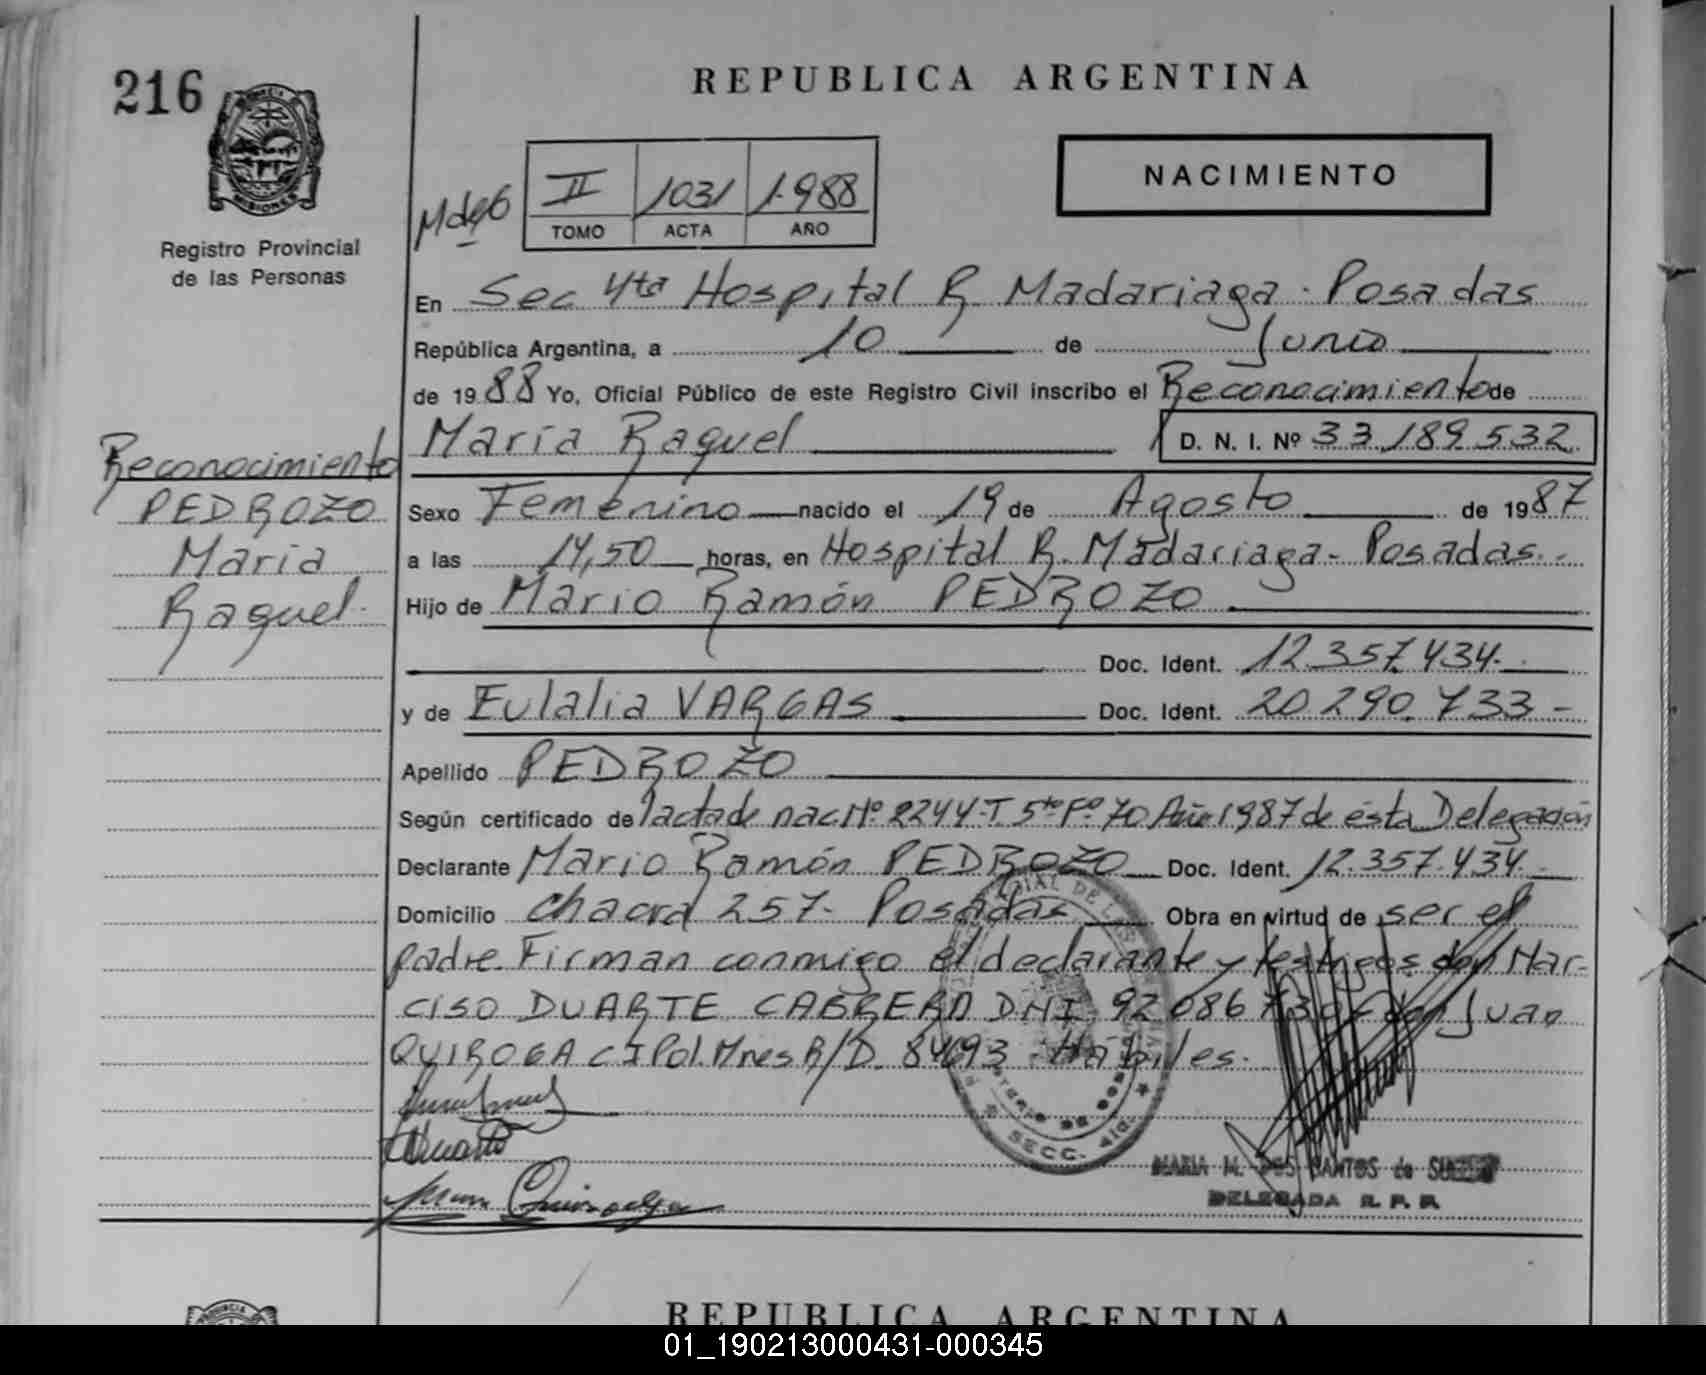 216
REPUBLICA ARGENTINA
NACIMIENTO
II 1031 1.988
TOMO ACTA AÑO
MISIONES
Registro Provincial
de las Personas
En Sec 4ta Hospital R. Madariaga. Posadas
República Argentina, a 10 de Junio
de 1988 Yo, Oficial Público de este Registro Civil inscribo el Reconocimiento de
María Raquel D. N. I. Nº 33.189.532
Reconocimiento
PEDROZO
María
Raquel.
Sexo Femenino nacido el 19 de Agosto de 1987
a las 14,50 horas, en Hospital R. Madariaga - Posadas.-
Hijo de Mario Ramón PEDROZO
Doc. Ident. 12.357.434.
y de Eulalia VARGAS Doc. Ident. 20.290.733-
Apellido PEDROZO
Según certificado de acta de nac Nº 2244-T. 5to Fº 70 Año 1987 de ésta Delegación
Declarante Mario Ramón PEDROZO Doc. Ident. 12.357.434.
Domicilio Chacra 257- Posadas Obra en virtud de ser el
padre. Firman conmigo el declarante y testigos don Nar-
ciso DUARTE CABRERA DNI 92086730 y don Juan
QUIROGA CI Pol. Mnes R/D. 84693 Hábiles.
Duarte
Juan Quiroga
SECC.
MARIA M. DOS SANTOS de
DELEGADA R. P. P.
REPUBLICA ARGENTINA
01_190213000431-000345